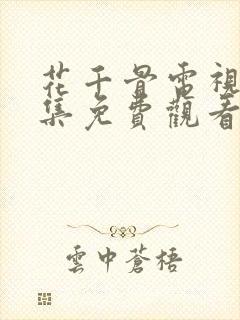 花千骨電視
集免費觀看
雲中蒼梧